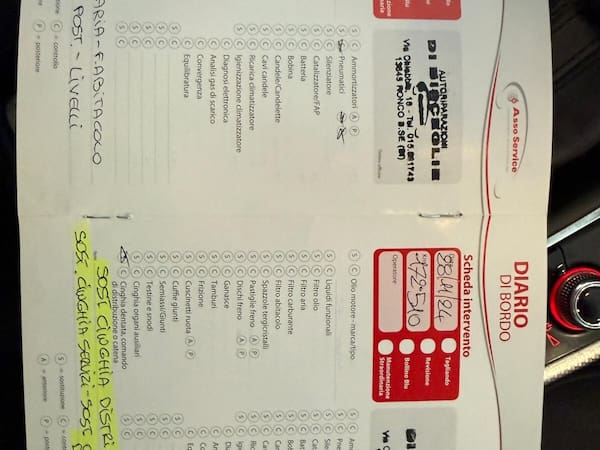 Asso Service
AUTORIPARAZIONI
DI BISCEGLIE
13845 RONCO B.SE (BI)
Timbro officina
S C Ammortizzatori A P
S C Pneumatici
S C Silenziatore
S C Catalizzatore/FAP
S C Batteria
S C Bobina
S C Candele/Candelette
S C Cavi candele
S C Ricarica climatizzatore
S C Igienizzazione climatizzatore
S C Diagnosi elettronica
S C Analisi gas di scarico
S C Convergenza
S C Equilibratura
S C
S C
S C
S C
ARIA - F. ABITACOLO
POST. - LIVELLI
C = controllo
P = posteriore
DIARIO
DI BORDO
Scheda intervento
Tagliando
Revisione
Bollino Blu
Manutenzione
Straordinaria
KM
172510
Operatore
S C Olio motore - marca/tipo
S C Liquidi funzionali
S C Filtro olio
S C Filtro aria
S C Filtro carburante
S C Filtro abitacolo
S C Spazzole tergicristalli
S C Pastiglie freno A P
S C Dischi freno A P
S C Ganasce
S C Tamburi
S C Frizione
S C Cuscinetti ruota A P
S C Cuffie giunti
S C Semiassi/Giunti
S C Testine e snodi
S C Cinghia organi ausiliari
S C Cinghia dentata, comando
di distribuzione o catena
Note
SOST. CINGHIA DISTRI
SOST. CINGHIA SERVIZI - SOST
S = sostituzione
C = con
A = anteriore
P = posteriore